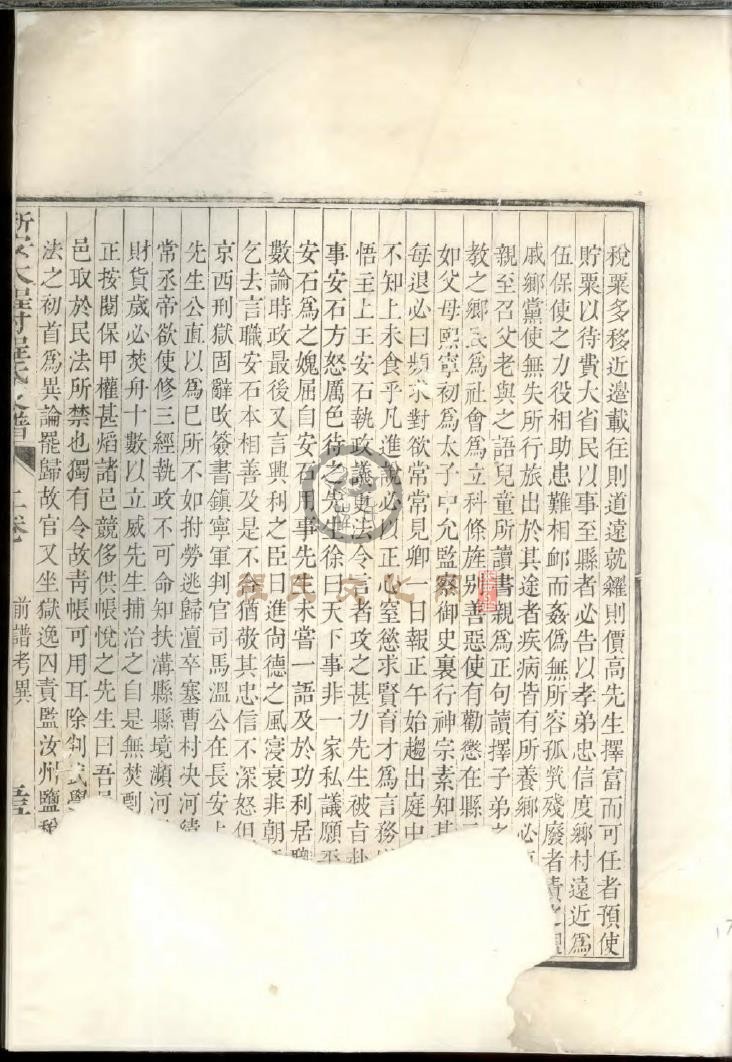 稅粟多移近邊載往則道遠就糴則價高先生擇富而可任者預使
貯粟以待費大省民以事至縣者必告以孝弟忠信度鄉村遠近爲
伍保使之力役相助患難相卹而姦僞無所容孤煢殘廢者責之親
戚鄉黨使無失所行旅出於其途者疾病皆有所養鄉必
親至召父老與之語兒童所讀書親爲正句讀擇子弟之
教之鄉民爲社會爲立科條旌别善惡使有勸懲在縣三
如父母熙寧初爲太子中允監察御史裏行神宗素知其
每退必曰頻求對欲常常見卿一日報正午始趨出庭中
不知上未食乎凡進說必以正心窒慾求賢育才爲言務
悟主上王安石執政議更法令言者攻之甚力先生被旨赴
事安石方怒厲色待之先生徐曰天下事非一家私議願平
安石爲之媿屈自安石用事先生未嘗一語及於功利居職
數論時政最後又言興利之臣日進尙德之風寖衰非朝
乞去言職安石本相善及是不合猶敬其忠信不深怒但
京西刑獄固辭改簽書鎮寧軍判官司馬溫公在長安上
先生公直以爲己所不如拊勞逃歸澶卒塞曹村決河
常丞帝欲使修三經執政不可命知扶溝縣縣境瀕河
財貨歲必焚舟十數以立威先生捕治之自是無焚剽
正按閱保甲權甚焰諸邑競侈供帳悅之先生曰吾邑
邑取於民法所禁也獨有令故靑帳可用耳除判武學
法之初首爲異論罷歸故官又坐獄逸囚責監汝州鹽稅
新安大程村程氏支譜 二卷 前譜考異